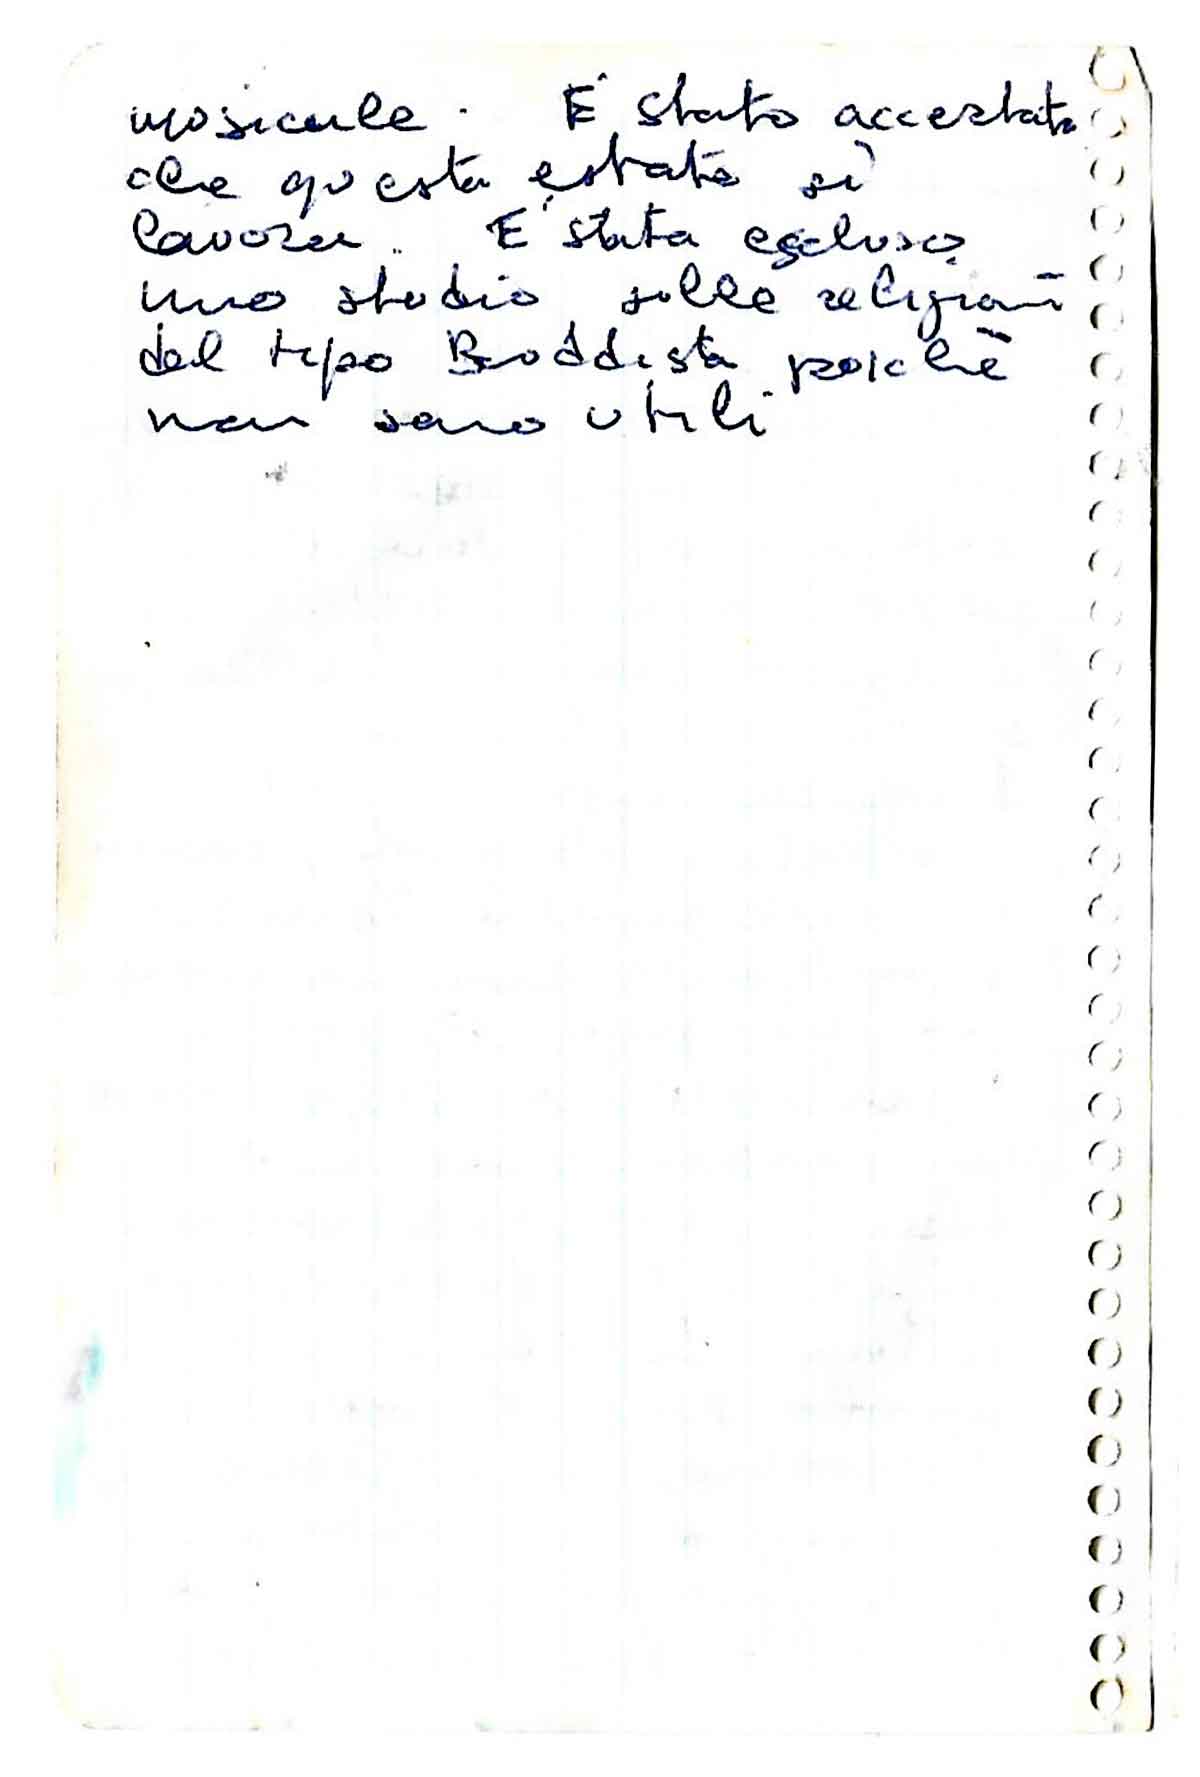 musicale. E' stato accertato
che questa estate si
lavora. E' stata escluso
uno studio sulle religioni
del tipo Buddista poichè
non sono utili